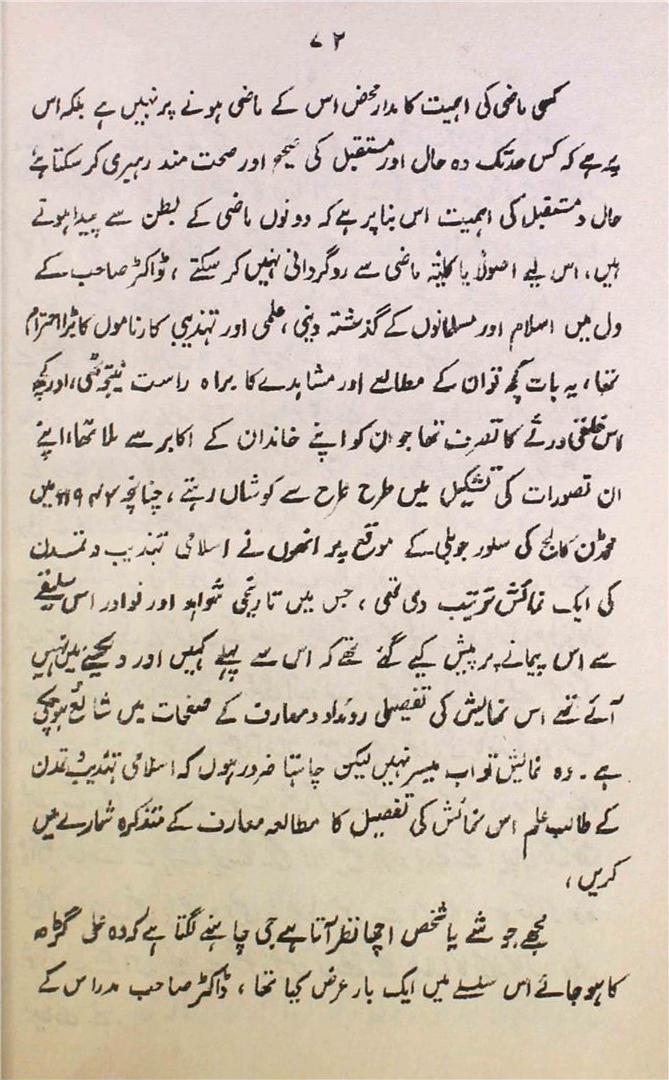 ۷۲
کسی ماضی کی اہمیت کا مدار محض اس کے ماضی ہونے پر نہیں ہے بلکہ اس
پر ہے کہ کس حد تک وہ حال اور مستقبل کی صحیح اور صحت مند رہبری کر سکتا ہے
حال و مستقبل کی اہمیت اس بنا پر ہے کہ دونوں ماضی کے بطن سے پیدا ہوتے
ہیں، اس لیے اصولاً یا کلیتہً ماضی سے روگردانی نہیں کر سکتے، ڈاکٹر صاحب کے
دل میں اسلام اور مسلمانوں کے گذشتہ دینی، علمی اور تہذیبی کارناموں کا بڑا احترام
تھا، یہ بات کچھ تو ان کے مطالعے اور مشاہدے کا براہ راست نتیجہ تھی، اور کچھ
اس خلقی ورثے کا تصرف تھا جو ان کو اپنے خاندان کے اکابر سے ملا تھا، اپنے
ان تصورات کی تشکیل میں طرح طرح سے کوشاں رہتے، چنانچہ ۱۹۴۷ء میں
محمڈن کالج کی سلور جوبلی کے موقع پر انھوں نے اسلامی تہذیب و تمدن
کی ایک نمائش ترتیب دی تھی، جس میں تاریخی شواہد اور نوادر اس سلیقے
سے اس پیمانے پر پیش کیے گئے تھے کہ اس سے پہلے کہیں اور دیکھنے میں نہیں
آئے تھے اس نمایش کی تفصیلی روئداد و معارف کے صفحات میں شائع ہو چکی
ہے۔ وہ نمایش تو اب میسر نہیں لیکن چاہتا ضرور ہوں کہ اسلامی تہذیب و تمدن
کے طالب علم اس نمائش کی تفصیل کا مطالعہ معارف کے متذکرہ شمارے میں
کریں،
مجھے جو شے یا شخص اچھا نظر آتا ہے جی چاہنے لگتا ہے کہ وہ علی گڑھ
کا ہو جائے اس سلسلے میں ایک بار عرض کیا تھا، ڈاکٹر صاحب مدراس کے